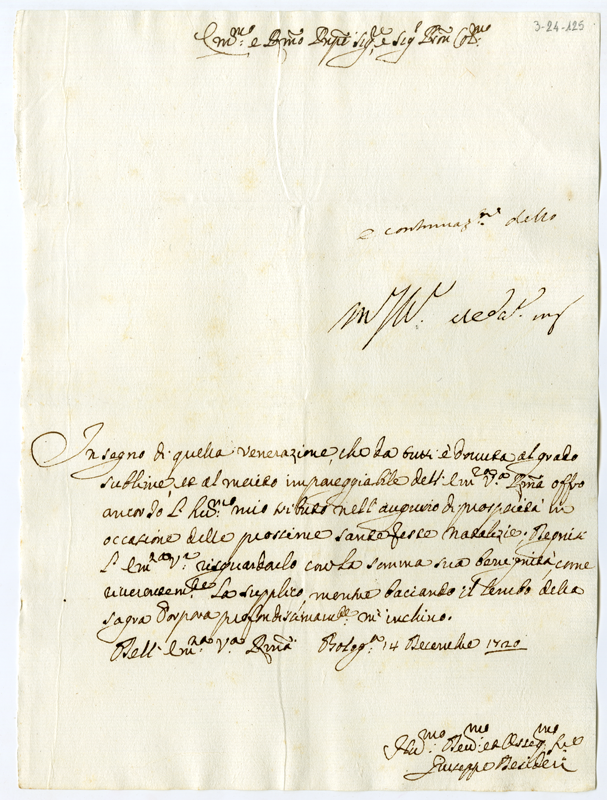 3-24-125
Em.mo e R.mo Prnpe Sig.e e Sig.
e continuaz.ne dello
In segno di quella venerazione, che da tutti è dovuta al grado
sublime, et al merito impareggiabile dell' Em.za V.a R.ma offro
ancor'io l' hu.mo mio tributo nell' augurio di prosperità in
occasione delle prossime sante feste natalizie. Degnisi
l' Em.za V.a risguardarlo con la somma sua benignità, come
riverentem.te La supplico, mentre baciando il lembo della
sagra Porpora profondissimam.te m' inchino.
Dell' Em.za V.a R.ma Bolog.a 14 Decembre 1720
Hu.mo Dev.mo et Osseq.mo
Giuseppe